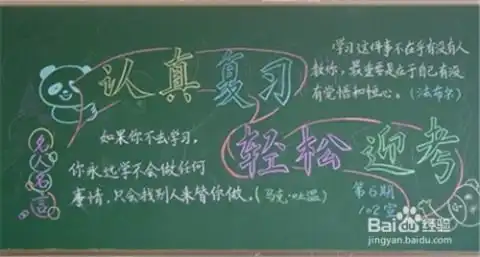 认真复习
轻松迎考
学习这件事不在乎有没有人
教你,最重要是在于自己有没
有觉悟和恒心。(法布尔)
名人名言
如果你不去学习,
你永远学不会做任何
事情,只会找别人来替你做。(马克·吐温)
第6期
102宣
Bai du 经验
jingyan.baidu.com